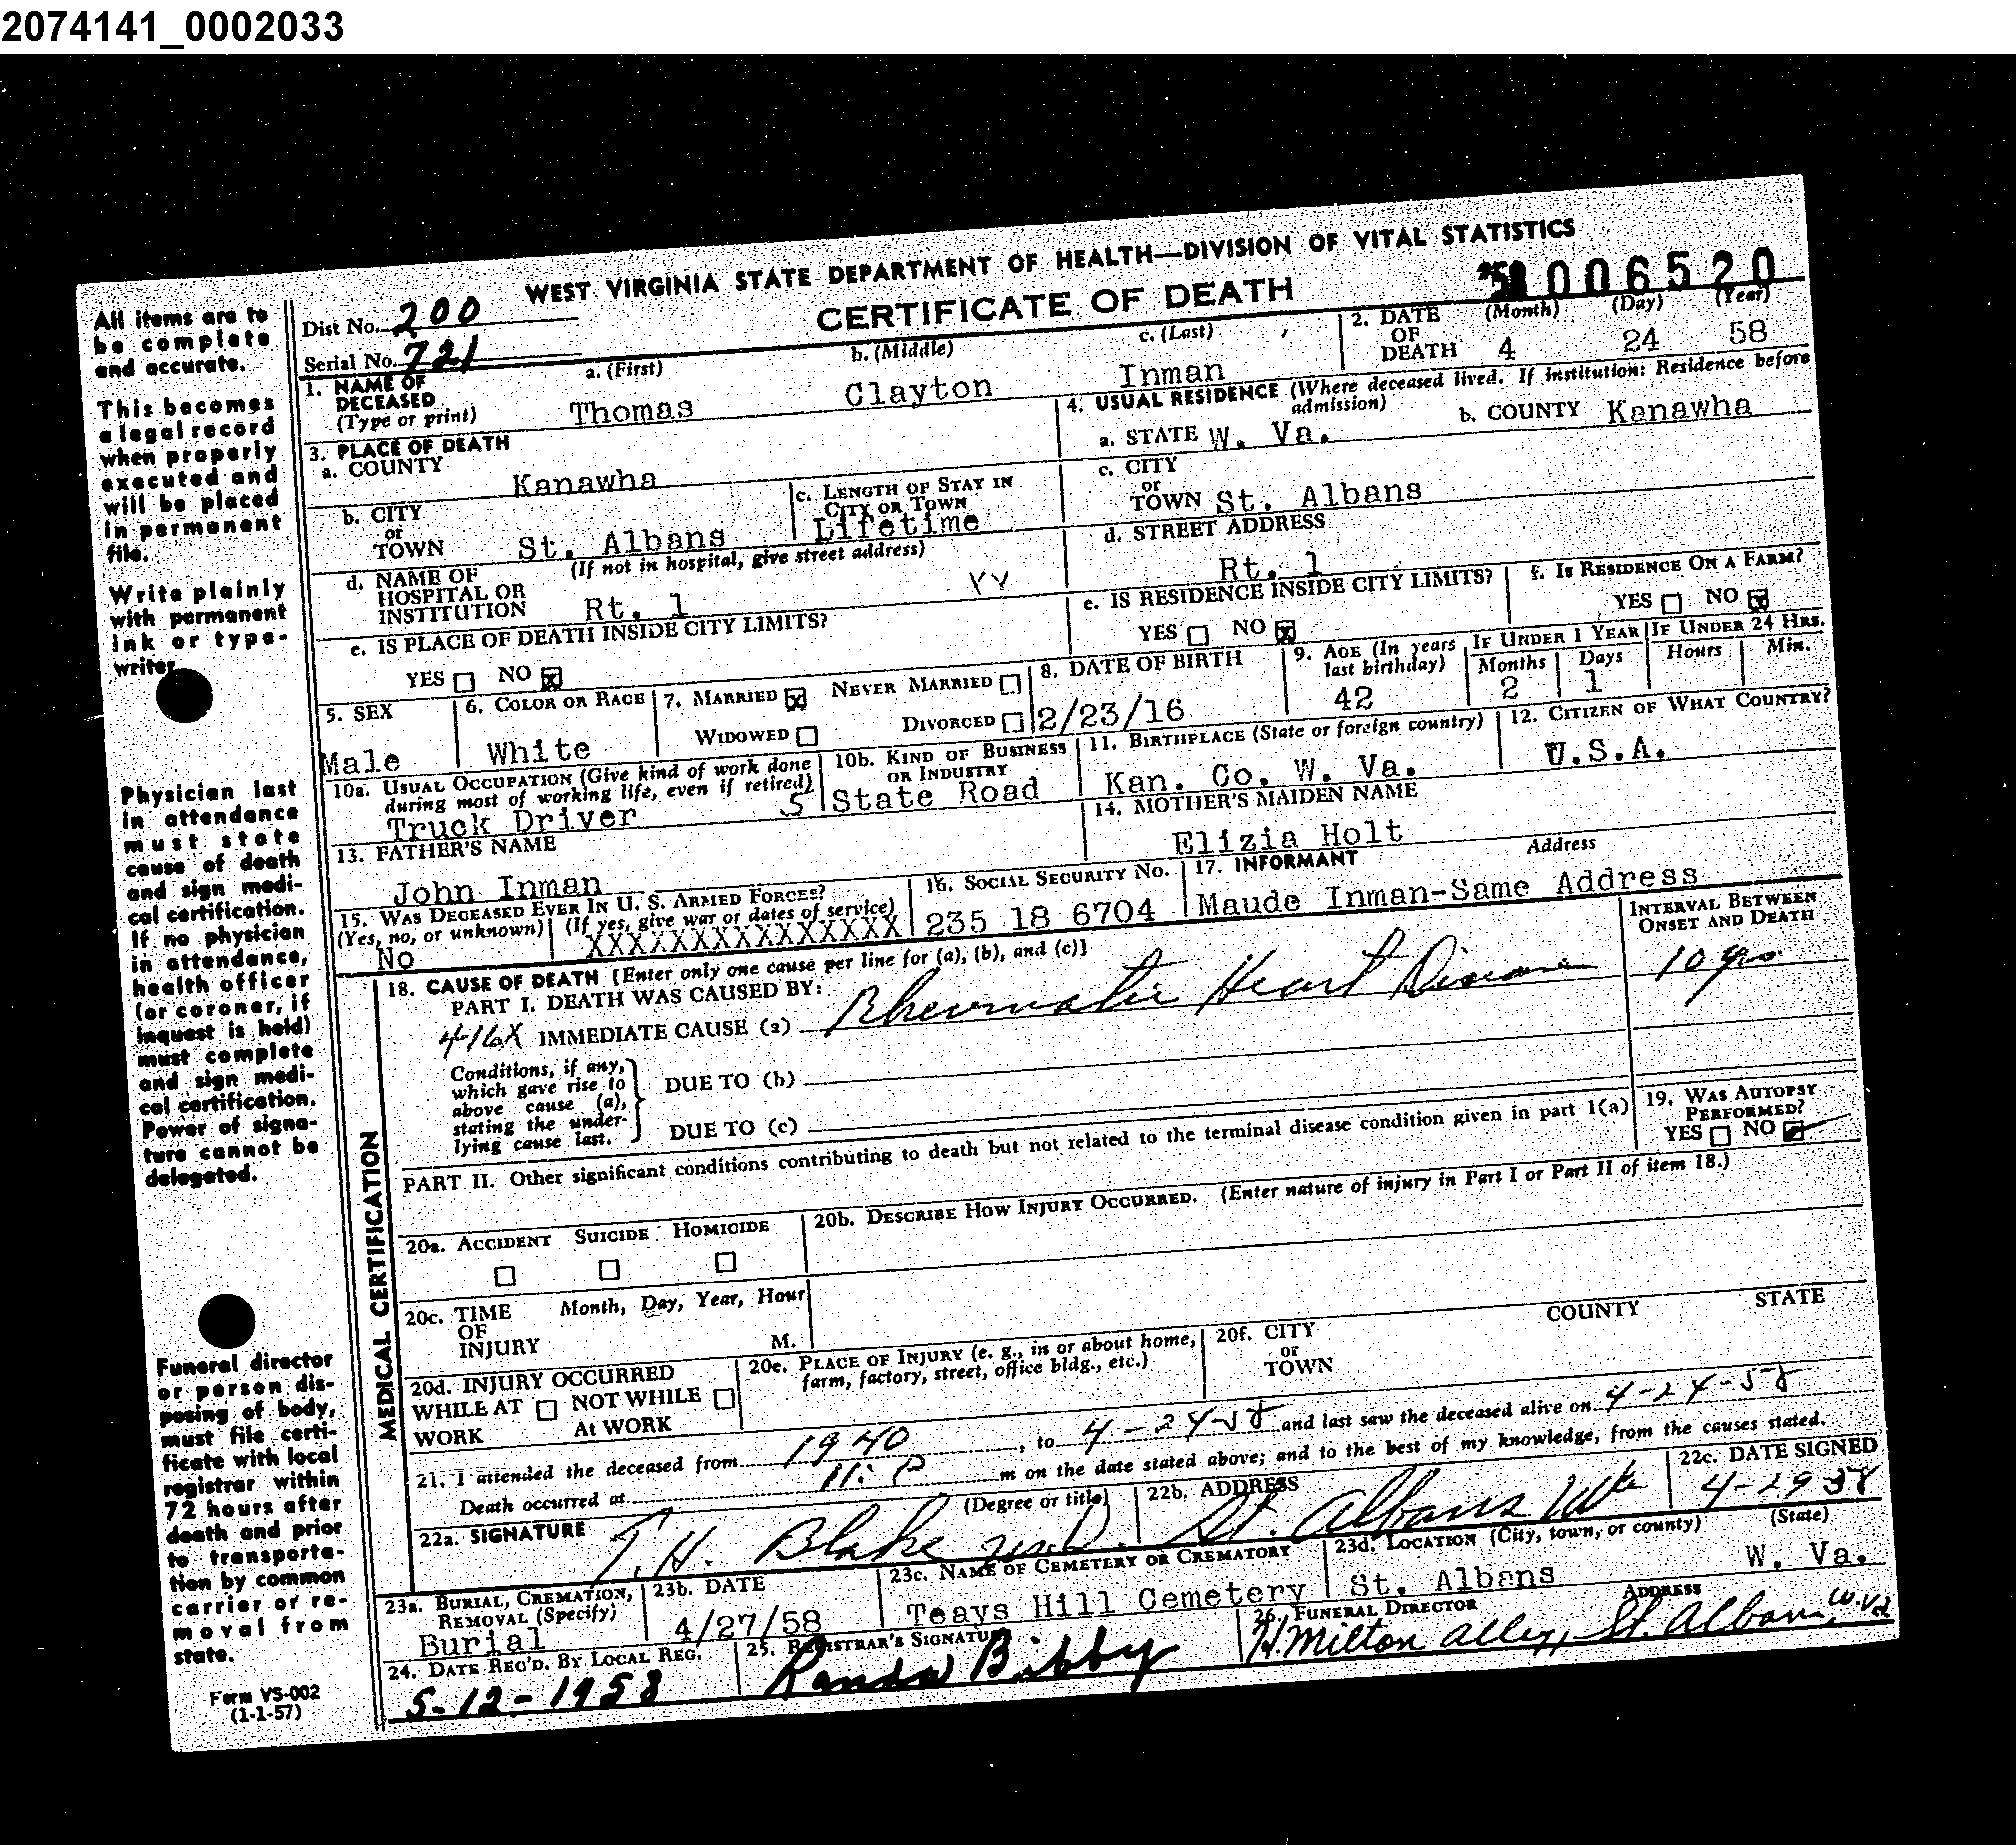 2074141_0002033
WEST VIRGINIA STATE DEPARTMENT OF HEALTH—DIVISION OF VITAL STATISTICS
CERTIFICATE OF DEATH
006520
Dist No. 200
Serial No. 721
1. NAME OF DECEASED (Type or print)
a. (First) Thomas
b. (Middle) Clayton
c. (Last) Inman
2. DATE OF DEATH (Month) 4 (Day) 24 (Year) 58
3. PLACE OF DEATH
a. COUNTY Kanawha
b. CITY or TOWN St. Albans
c. LENGTH OF STAY IN CITY OR TOWN Lifetime
d. NAME OF HOSPITAL OR INSTITUTION (If not in hospital, give street address) Rt. 1
e. IS PLACE OF DEATH INSIDE CITY LIMITS?
YES NO X
4. USUAL RESIDENCE (Where deceased lived. If institution: Residence before admission)
a. STATE W. Va.
b. COUNTY Kanawha
c. CITY or TOWN St. Albans
d. STREET ADDRESS Rt. 1
e. IS RESIDENCE INSIDE CITY LIMITS?
YES NO X
f. IS RESIDENCE ON A FARM?
YES NO X
5. SEX Male
6. COLOR OR RACE White
7. MARRIED X NEVER MARRIED
WIDOWED DIVORCED
8. DATE OF BIRTH 2/23/16
9. AGE (In years last birthday) 42
IF UNDER 1 YEAR Months 2 Days 1
IF UNDER 24 HRS. Hours Min.
10a. USUAL OCCUPATION (Give kind of work done during most of working life, even if retired) Truck Driver 5
10b. KIND OF BUSINESS OR INDUSTRY State Road
11. BIRTHPLACE (State or foreign country) Kan. Co. W. Va.
12. CITIZEN OF WHAT COUNTRY? U.S.A.
13. FATHER'S NAME John Inman
14. MOTHER'S MAIDEN NAME Elizia Holt
15. WAS DECEASED EVER IN U. S. ARMED FORCES?
(Yes, no, or unknown) No
(If yes, give war or dates of service) XXXXXXXXXXXXXXX
16. SOCIAL SECURITY NO. 235 18 6704
17. INFORMANT Address
Maude Inman-Same Address
MEDICAL CERTIFICATION
18. CAUSE OF DEATH [Enter only one cause per line for (a), (b), and (c)]
PART I. DEATH WAS CAUSED BY:
416X IMMEDIATE CAUSE (a) Rheumatic Heart Disease
INTERVAL BETWEEN ONSET AND DEATH 10 yrs
Conditions, if any, which gave rise to above cause (a), stating the underlying cause last.
DUE TO (b)
DUE TO (c)
PART II. Other significant conditions contributing to death but not related to the terminal disease condition given in part I(a)
19. WAS AUTOPSY PERFORMED?
YES NO
20a. ACCIDENT SUICIDE HOMICIDE
20b. DESCRIBE HOW INJURY OCCURRED. (Enter nature of injury in Part I or Part II of item 18.)
20c. TIME OF INJURY Month, Day, Year, Hour M.
20d. INJURY OCCURRED
WHILE AT WORK NOT WHILE At WORK
20e. PLACE OF INJURY (e. g., in or about home, farm, factory, street, office bldg., etc.)
20f. CITY or TOWN COUNTY STATE
21. I attended the deceased from 1940, to 4-24-58 and last saw the deceased alive on 4-24-58
Death occurred at 11: P m on the date stated above; and to the best of my knowledge, from the causes stated.
22a. SIGNATURE (Degree or title) T. H. Blake M.D.
22b. ADDRESS St. Albans WVa
22c. DATE SIGNED 4-29 58
23a. BURIAL, CREMATION, REMOVAL (Specify) Burial
23b. DATE 4/27/58
23c. NAME OF CEMETERY OR CREMATORY Teays Hill Cemetery
23d. LOCATION (City, town, or county) (State) St. Albans W. Va.
24. DATE REC'D. BY LOCAL REG. 5-12-1958
25. REGISTRAR'S SIGNATURE Randa Bibby
26. FUNERAL DIRECTOR ADDRESS
H. Milton Alley, St. Albans, W.Va
All items are to
be complete
and accurate.
This becomes
a legal record
when properly
executed and
will be placed
in permanent
file.
Write plainly
with permanent
ink or type-
writer.
Physician last
in attendance
must state
cause of death
and sign medi-
cal certification.
If no physician
in attendance,
health officer
(or coroner, if
inquest is held)
must complete
and sign medi-
cal certification.
Power of signa-
ture cannot be
delegated.
Funeral director
or person dis-
posing of body,
must file certi-
ficate with local
registrar within
72 hours after
death and prior
to transporta-
tion by common
carrier or re-
moval from
state.
Form VS-002
(1-1-57)